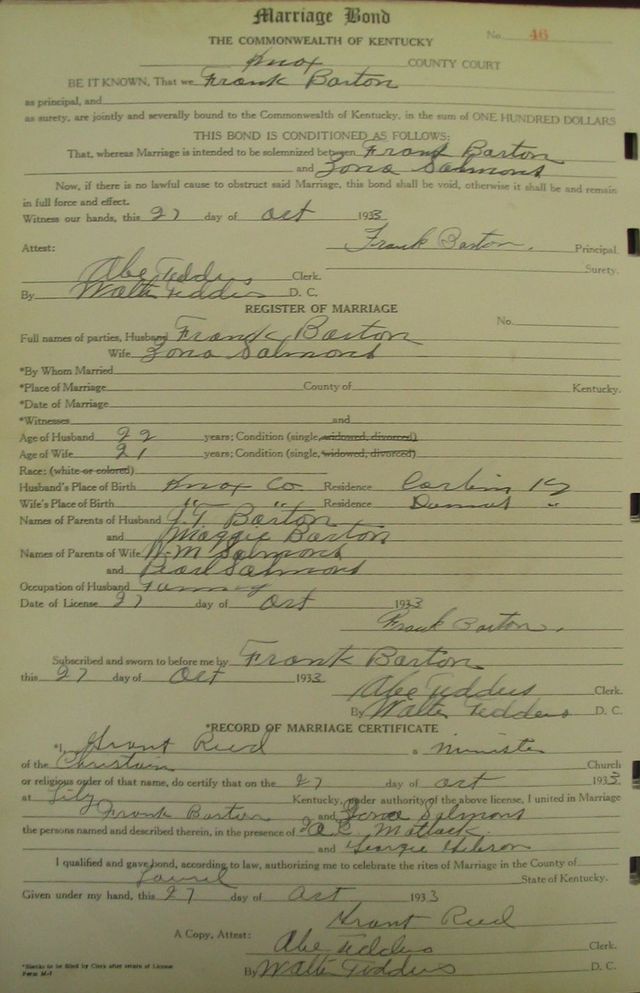 Marriage Bond
No. 46
THE COMMONWEALTH OF KENTUCKY
Knox COUNTY COURT
BE IT KNOWN, That we Frank Barton
as principal, and
as surety, are jointly and severally bound to the Commonwealth of Kentucky, in the sum of ONE HUNDRED DOLLARS
THIS BOND IS CONDITIONED AS FOLLOWS:
That, whereas Marriage is intended to be solemnized between Frank Barton
and Zona Salmons
Now, if there is no lawful cause to obstruct said Marriage, this bond shall be void, otherwise it shall be and remain
in full force and effect.
Witness our hands, this 27 day of Oct 1933
Frank Barton. Principal.
Attest:
Surety.
Abe Tedders Clerk.
By Walter Tedders D. C.
REGISTER OF MARRIAGE
No.
Full names of parties, Husband Frank Barton
Wife Zona Salmons
*By Whom Married
*Place of Marriage County of Kentucky.
*Date of Marriage
*Witnesses and
Age of Husband 22 years; Condition (single, widowed, divorced)
Age of Wife 21 years; Condition (single, widowed, divorced)
Race: (white or colored)
Husband's Place of Birth Knox Co Residence Corbin Ky
Wife's Place of Birth " " Residence "
Names of Parents of Husband J.T. Barton
and Maggie Barton
Names of Parents of Wife M Salmons
and Pearl Salmons
Occupation of Husband
Date of License 27 day of Oct 1933
Frank Barton.
Subscribed and sworn to before me by Frank Barton
this 27 day of Oct 1933
Abe Tedders Clerk.
By Walter Tedders D. C.
*RECORD OF MARRIAGE CERTIFICATE
*I, Grant Reed a minister
of the Christain Church
or religious order of that name, do certify that on the 27 day of Oct 1933
at Lily Kentucky, under authority of the above license, I united in Marriage
Frank Barton and Zona Salmons
the persons named and described therein, in the presence of Matlack
and Georgie
I qualified and gave bond, according to law, authorizing me to celebrate the rites of Marriage in the County of
Laurel State of Kentucky.
Given under my hand, this 27 day of Oct 1933
Grant Reed
A Copy, Attest: Abe Tedders Clerk.
By Walter Tedders D. C.
*Blanks to be filled by Clerk after return of License
Form M-1